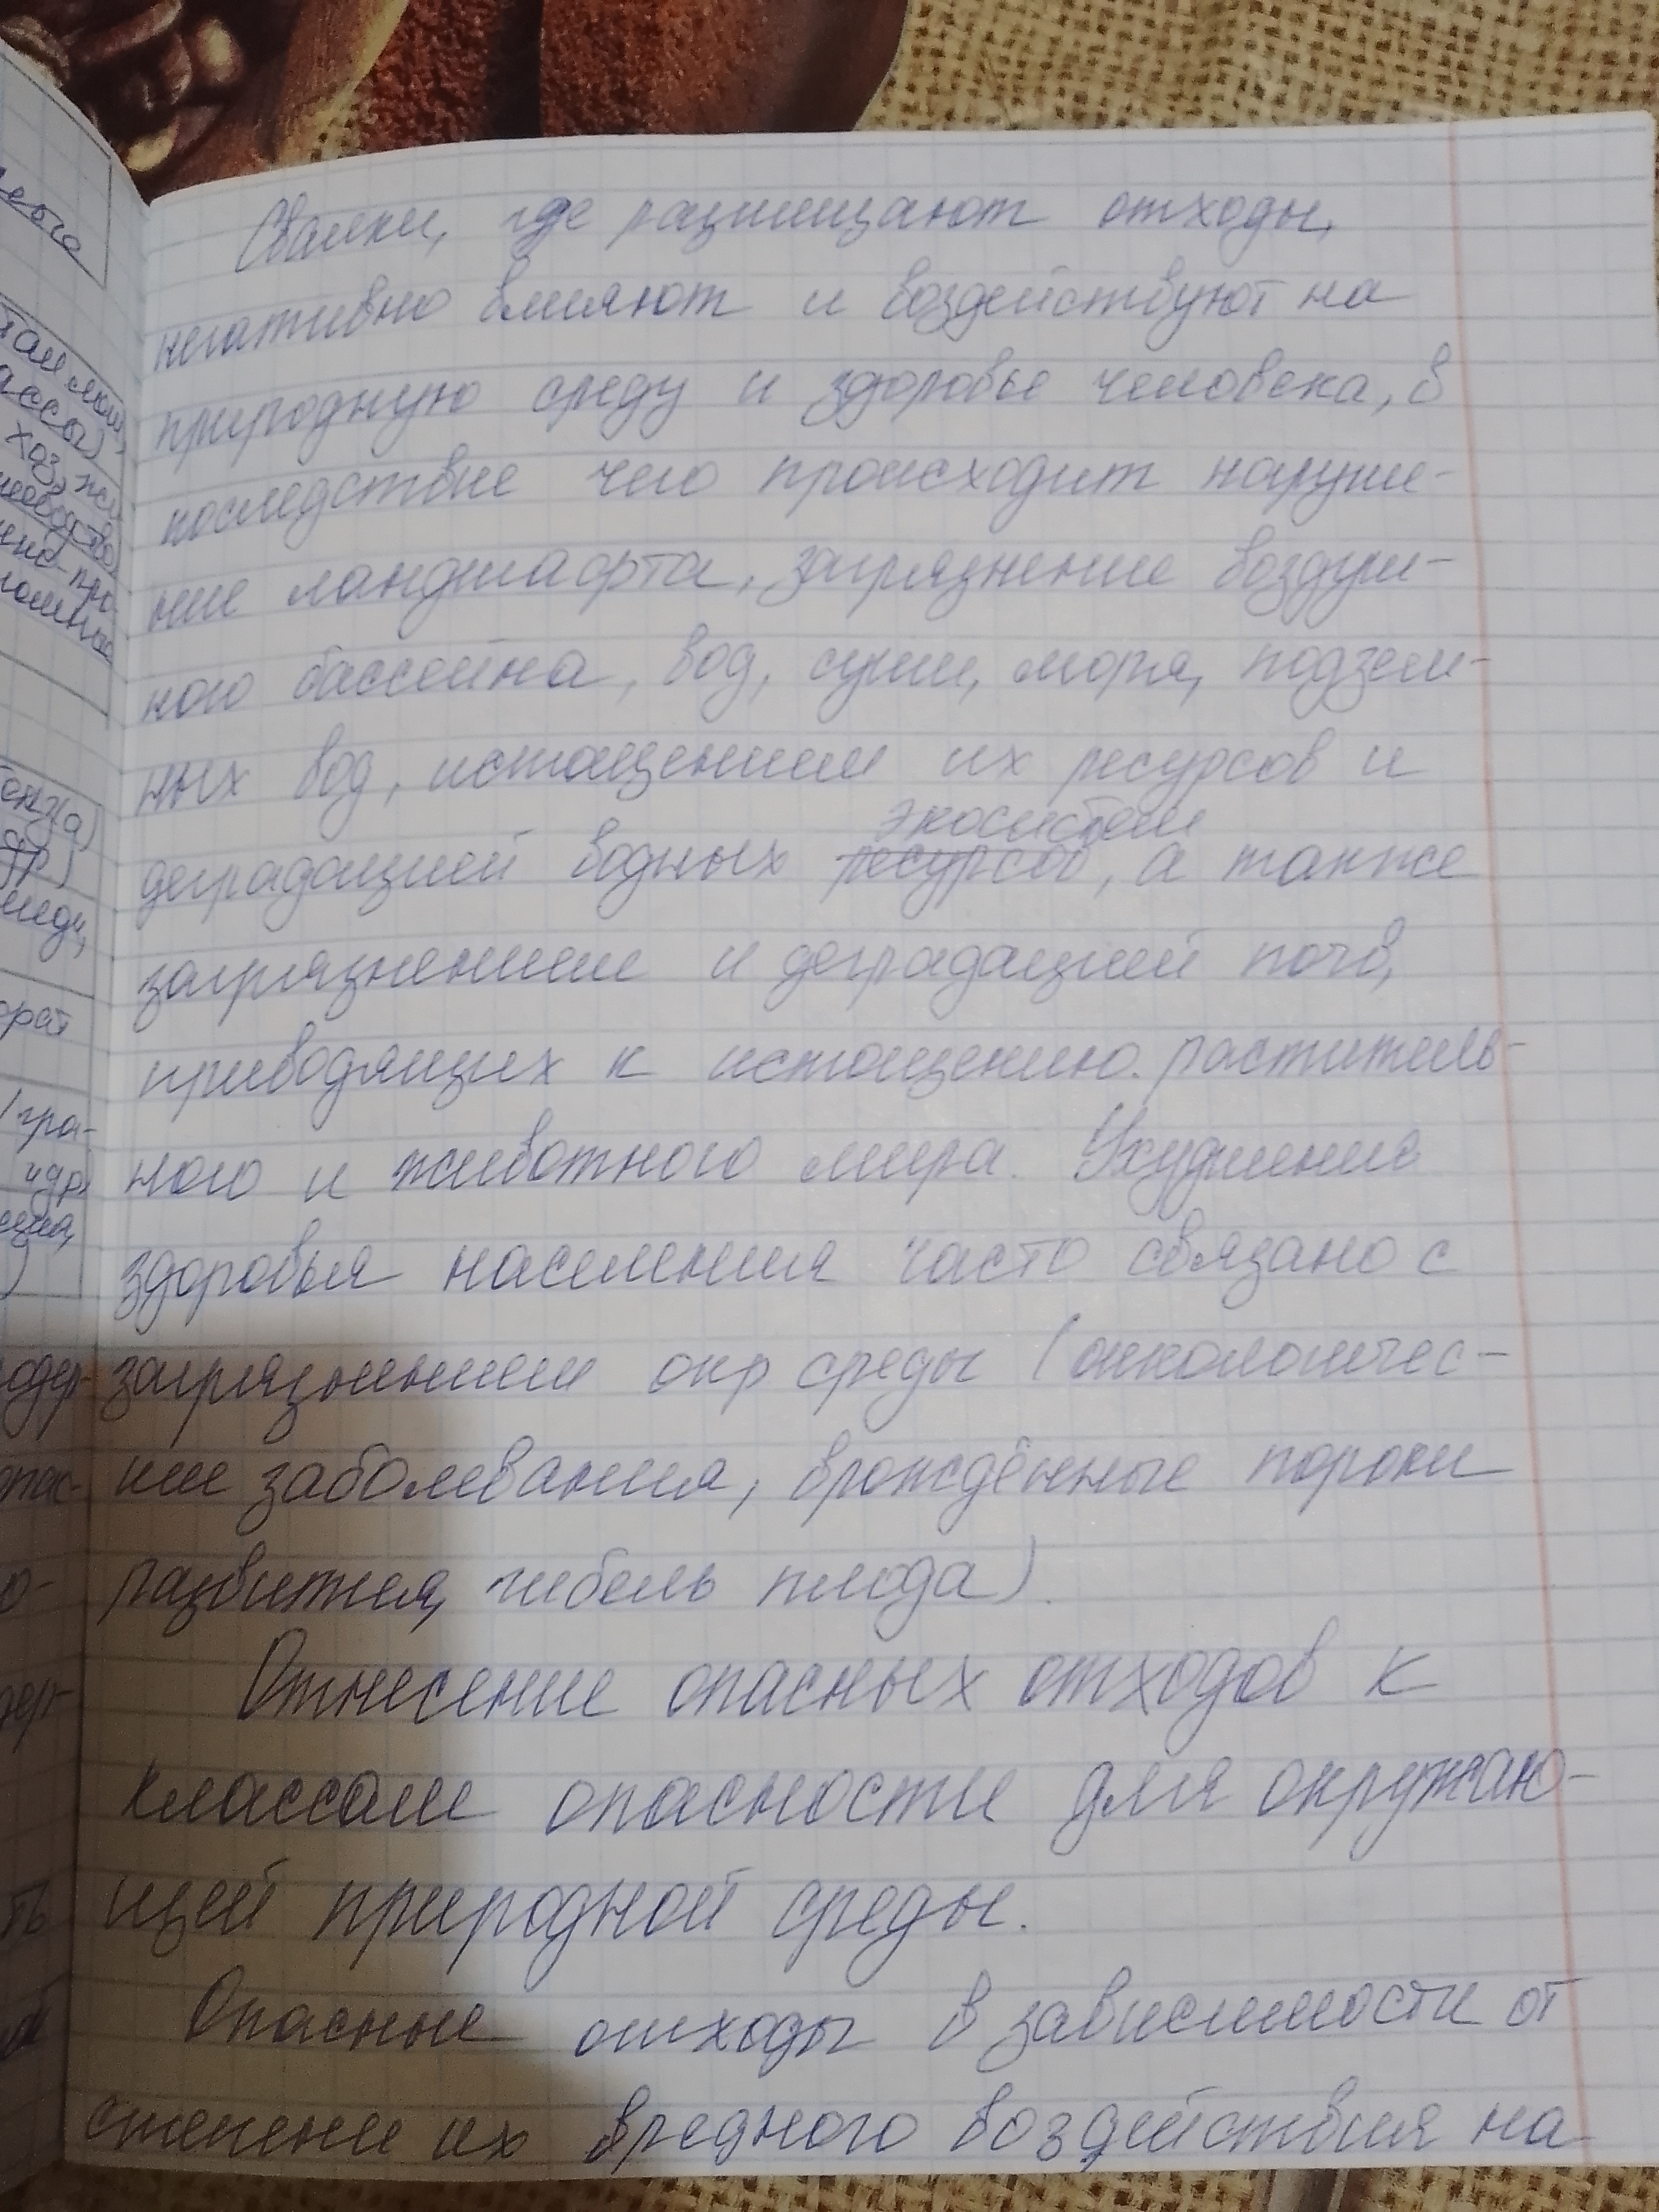 Свалки, где размещают отходы,
негативно влияют и воздействуют на
природную среду и здоровье человека, в
последствие чего происходит наруше-
ние ландшафта, загрязнение воздуш-
ного бассейна, вод, суши, моря, подзем-
ных вод, истощением их ресурсов и
экосистем
деградацией водных ресурсов, а также
загрязнением и деградацией почв,
приводящих к истощению раститель-
ного и животного мира. Ухудшение
здоровья населения часто связано с
загрязнением окр среды (онкологичес-
кие заболевания, врождённые пороки
развития, гибель плода).
Отнесение опасных отходов к
классам опасности для окружаю-
щей природной среды.
Опасные отходы в зависимости от
степени их вредного воздействия на